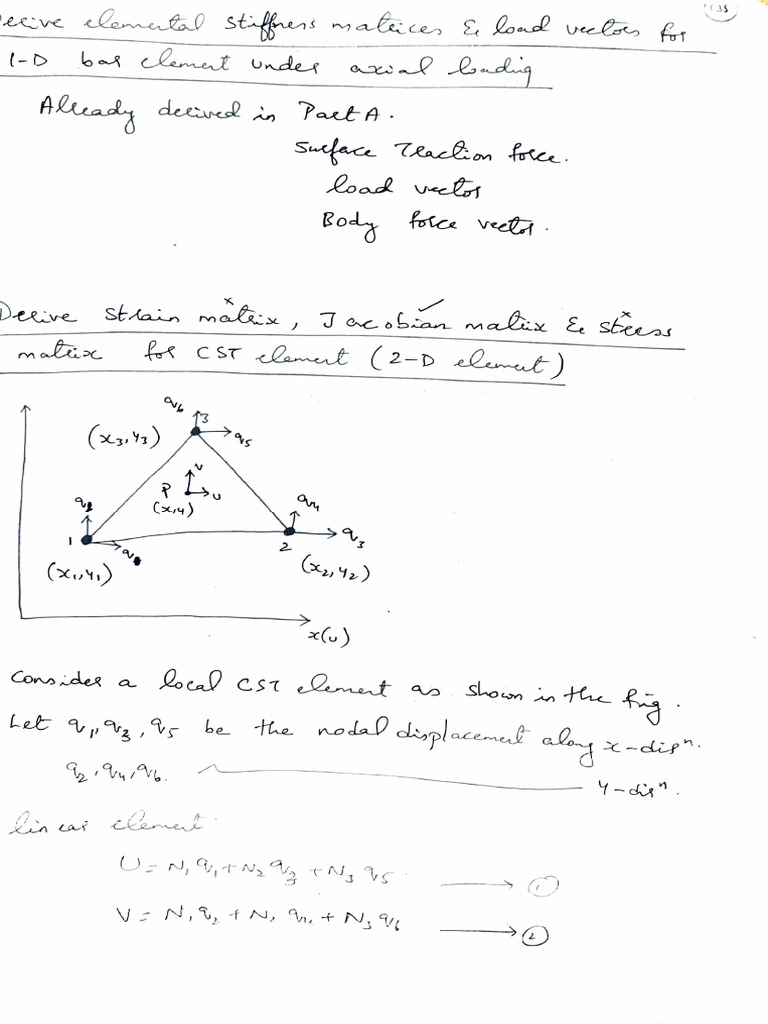 135
Derive elemental stiffness matrices & load vectors for
1-D bar element under axial loading
Already derived in Part A.
Surface Traction force.
load vector
Body force vector.
Derive Strain matrix, Jacobian matrix & stress
matrix for CST element (2-D element)
q6
3
(x3,y3)
q5
v
P
u
(x,y)
q2
q4
1
2
q3
(x1,y1)
(x2,y2)
x(u)
Consider a local CST element as shown in the fig.
Let q1, q3, q5 be the nodal displacement along x-dirn.
q2, q4, q6. y-dirn.
linear element
U = N1 q1 + N2 q3 + N3 q5 → 1
V = N1 q2 + N2 q4 + N3 q6 → 2